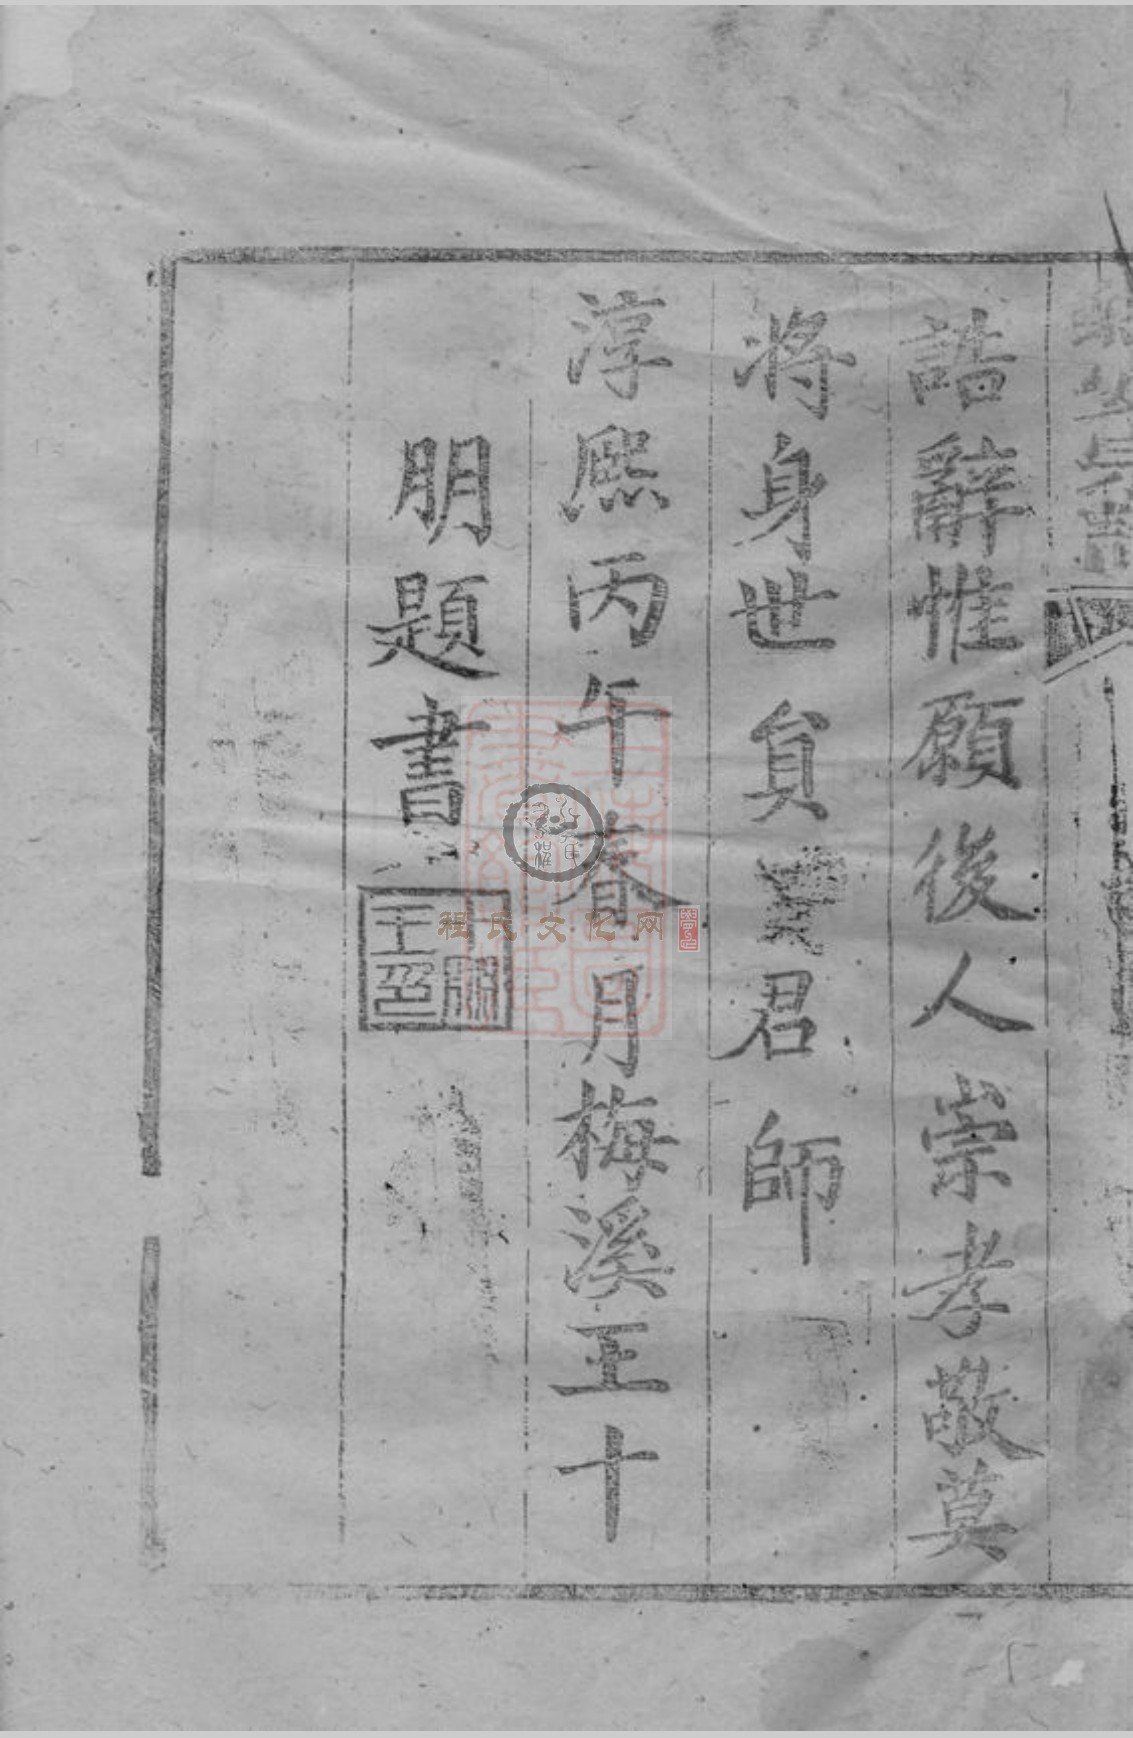 誥辭惟願後人崇孝敬莫
將身世負君師
淳熙丙午春月梅溪王十
朋題書
程氏文化网